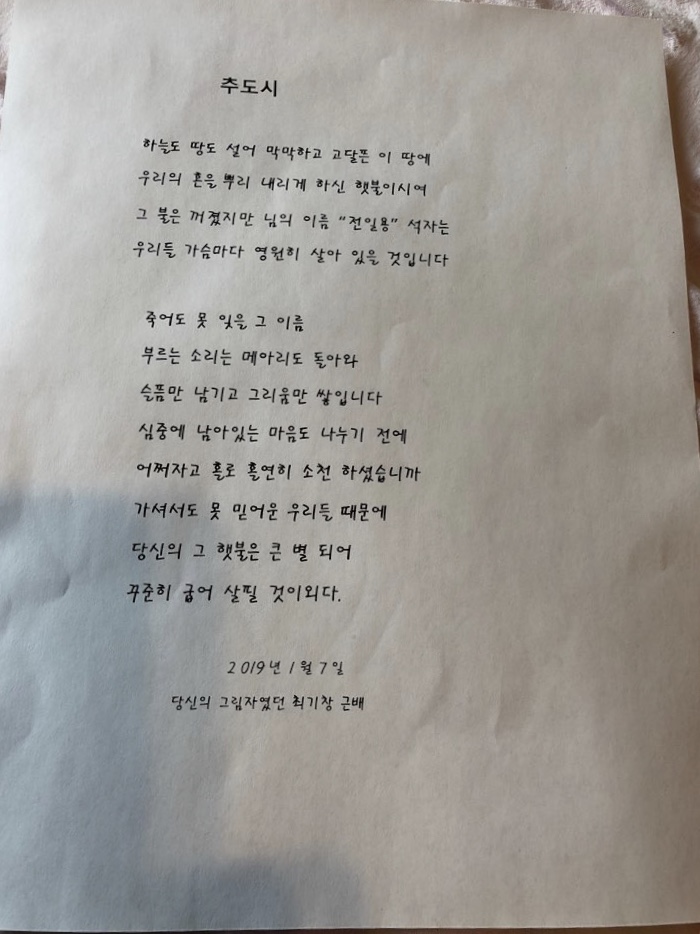 추도시
하늘도 땅도 설어 막막하고 고달픈 이 땅에
우리의 혼을 뿌리 내리게 하신 햇불이시여
그 불은 꺼졌지만 님의 이름 "전일용" 석자는
우리들 가슴마다 영원히 살아 있을 것입니다
죽어도 못 잊을 그 이름
부르는 소리는 메아리도 돌아와
슬픔만 남기고 그리움만 쌓입니다
심중에 남아있는 마음도 나누기 전에
어쩌자고 홀로 홀연히 소천 하셨습니까
가셔서도 못 믿어운 우리들 때문에
당신의 그 햇불은 큰 별 되어
꾸준히 굽어 살필 것이외다.
2019년 1월 7일
당신의 그림자였던 최기창 근배